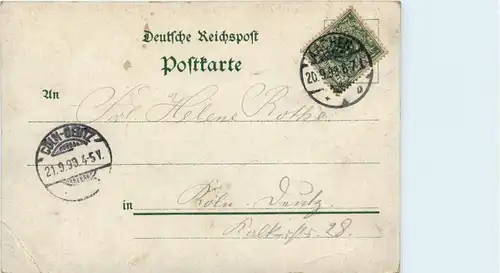 Deutsche Reichspost
Postkarte
AACHEN
20.9.99. 6-7
An
Frl Helene Rothe
CÖLN-DEUTZ
21.9.99.4-5V.
in Köln-Deutz
Kalkerstr. 28.